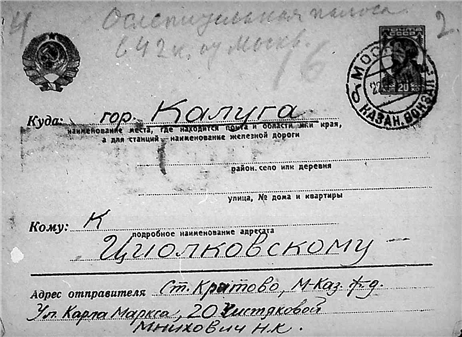 Ослепительная полоса 2.
642 к. от Москв.
ПОЧТА СССР
20
МОСКВА
КАЗАН. ВОКЗАЛ
Куда: гор. Калуга
наименование места, где находится почта и области или края,
а для станций - наименование железной дороги
район, село или деревня
улица, № дома и квартиры
Кому: К
подробное наименование адресата
Циолковскому
Адрес отправителя Ст. Кратово, М-Каз. ж-д.
Ул. Карла Маркса, 20 Чистяковой
Мнихович Н.К.